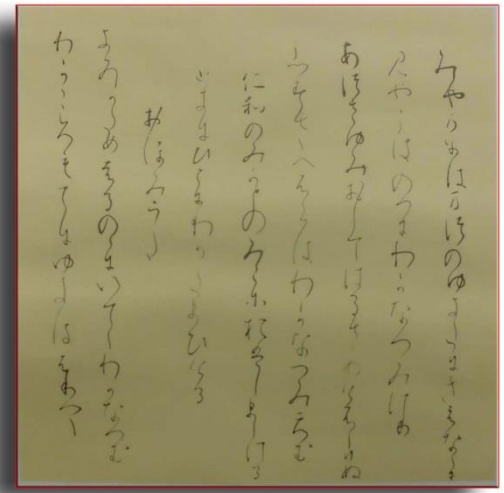 みやまにはまつのゆきたにきえなくに
みやこはのへのわかなつみけり
あつさゆみおしてはるさめけふふりぬ
あすさへふらはわかなつみてむ
仁和のみかとのみこにおはしましける
ときにひとにわかなたまひける
おほみうた
きみかためはるののにいててわかなつむ
わかころもてにゆきはふりつつ